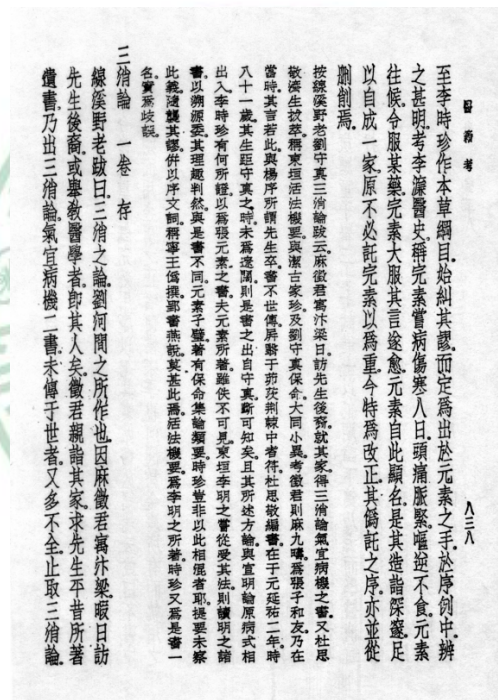 醫籍考
八三八
至李時珍作本草綱目始糾其謬而定爲出於元素之手於序例中辨
之甚明考李濂醫史稱完素嘗病傷寒八日頭痛脈緊嘔逆不食元素
往候令服某藥完素大服其言遂愈元素自此顯名是其造詣深邃足
以自成一家原不必託完素以爲重今特爲改正其僞託之序亦並從
刪削焉
按線溪野老劉守眞三消論跋云麻徵君寓汴梁日訪先生後裔就其家得三消論氣宜病機之書又杜思
敬濟生拔萃稱東垣活法機要與潔古家珍及劉守眞保命大同小異考徵君則麻九疇爲張子和友乃在
當時其言若此與楊序所謂先生卒書不世傳屏翳于茆茨荆棘中者符杜思敬編書在于元延祐二年時
八十一歲其生距守眞之時未爲遼闊則是書之出自守眞斷可知矣且其所述方論與宣明論原病式相
出入李時珍有何所證以爲張元素之書夫元素所著雖佚不可見東垣李明之嘗從受其法則讀明之諸
書以溯源委其理趣判然與是書不同元素子璧著有保命集論類要時珍豈非以此相混者耶提要未察
此義隨襲其謬併以序文詞稱寧王僞撰郢書燕說莫甚此焉活法機要爲李明之所著時珍又爲是書一
名實爲歧誤
三消論 一卷 存
線溪野老跋曰三消之論劉河間之所作也因麻徵君寓汴梁暇日訪
先生後裔或舉教醫學者即其人矣徵君親詣其家求先生平昔所著
遺書乃出三消論氣宜病機二書未傳于世者又多不全止取三消論